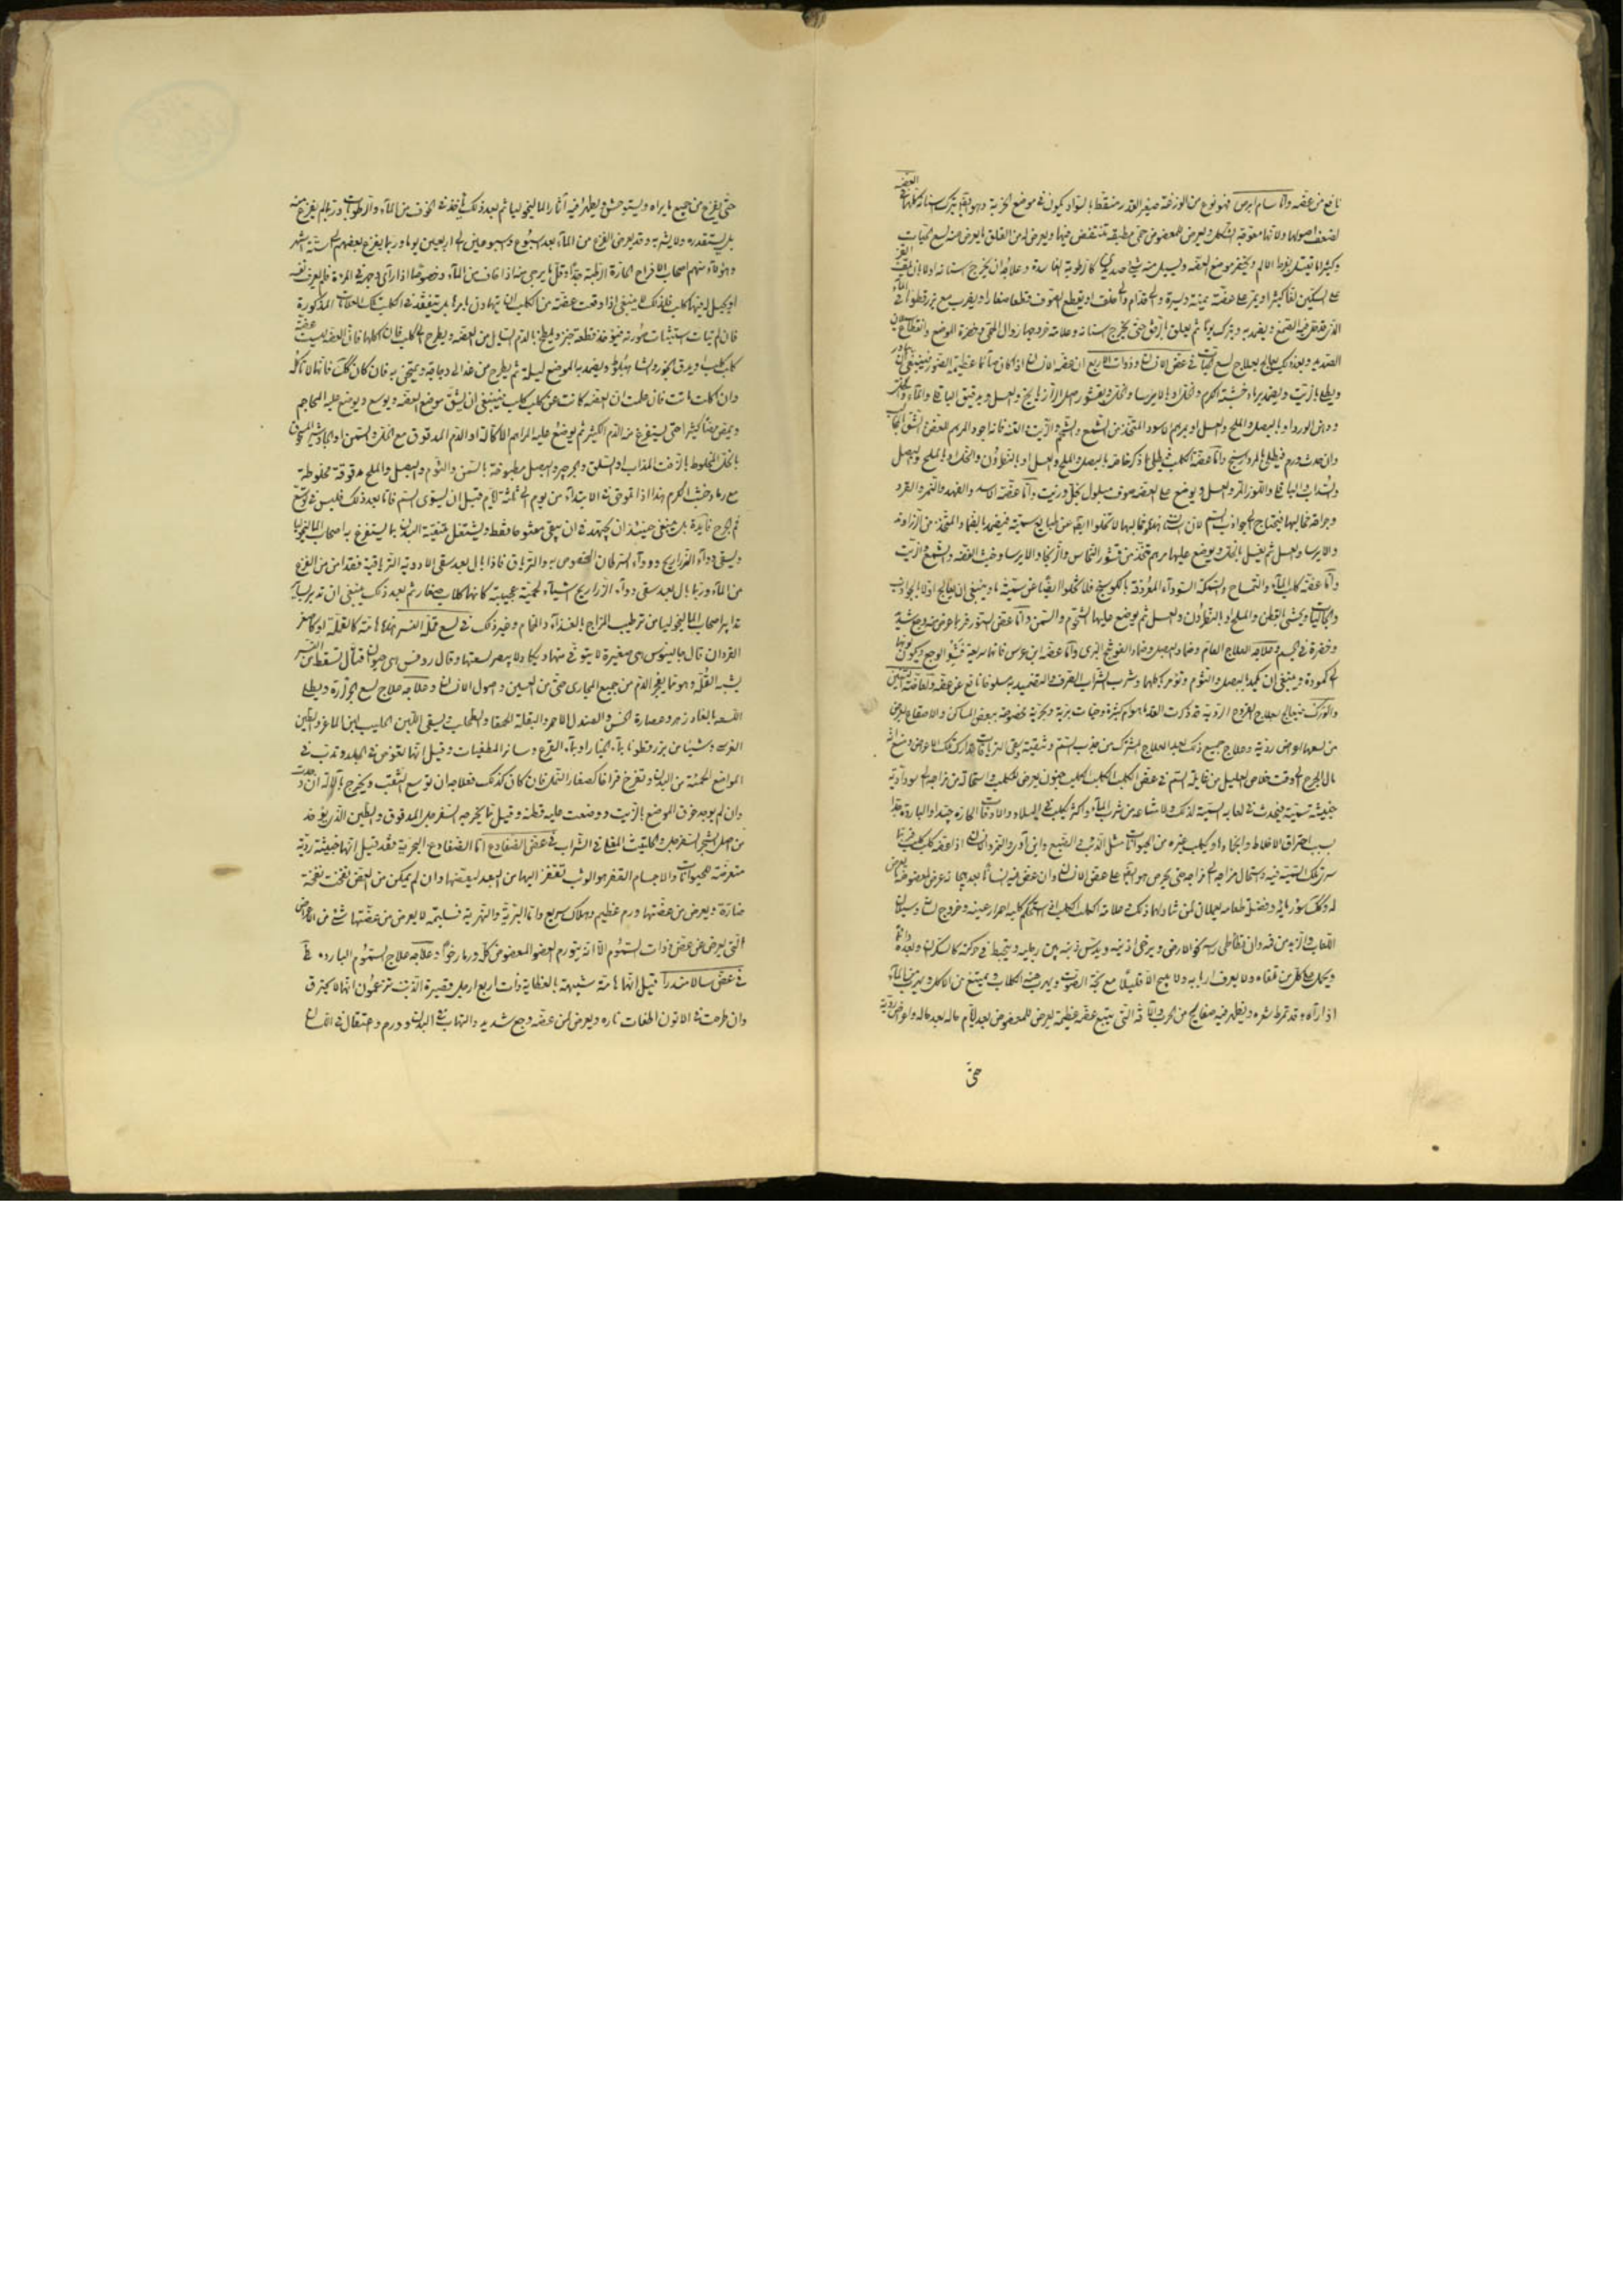 نافع من عضه واما سام ابرص فهو نوع من الوزغة صغير القدر منقط بالسواد يكون في موضع الخربة وهو اسنانه كلها في العضة
لضعف اصولها ولانها معوجة الشكل ويعرض للمعضوض حمى مطبقة تنقض فيها ويعرض له من القلق ما يعرض من لسع الحيات
وكثيرا ما يقتل بفرط الالم ويخضر موضع العضة ويسيل منه شئ صديدي كالرطوبة الفاسدة وعلاجه ان يخرج اسنانه اولا بان يلف القز
على السكين لفا كثيرا ويمر على عضته يمينة ويسرة والى قدام والى خلف او يقطع الصوف قطعا صغارا ويضرب مع بزر قطونا في الماء
الذي قد نقع فيه الصمغ ويضمد به ويترك يوما ثم يعلق بالرفق حتى يخرج اسنانه وعلامة خروجها زوال الحمى وخضرة الموضع وانقطاع سيلان
الصديد وبعد ذلك يعالج بعلاج لسع الحيات في عض الانسان وذوات الاربع ان عضة الانسان اذا كان صائما عظيمة الضرر فينبغي ان يبادر
ويطلى بالزيت ويضمد برماد خشبة الكرم والخل او بالايرسا والخل وبقشور اصل الرازيانج والعسل وبدقيق الباقلى والماء والخل
ودهن الورد او بالبصل والملح والعسل او بمرهم الاسود المتخذ من الشمع والشحم والزيت والقنة فانه اجود المراهم لعض
وان حدث ورم فيطلى بالمرداسنج واما عضة الكلب فيطلى بما ذكر خاصة بالبصل والملح والعسل او بالنطرون والخل او بالملح والبصل
والسذاب والباقلى واللوز المر والعسل ويوضع على العضة صوف مبلول بخل وزيت واما عضة الاسد والفهد والنمر والقرد
وجراحة مخالبها فيحتاج الى جواذب السم لان اسنانها ومخالبها لا تخلوا ايضا من طبايع سمية فيضمد بالضماد المتخذ من الزراوند
والايرسا والعسل ثم يغسل بالخل ويوضع عليها مرهم متخذ من قشور النحاس والزنجار والايرسا وخبث الفضة والشمع والزيت
واما عضة كلب الماء والتمساح والسمكة السوداء المعروفة بالكوسج فلا تخلوا ايضا عن سمية ما وينبغي ان يعالج اولا بالجواذب
والجاليات ويحشى بالقطن والملح او بالنطرون والعسل ثم يوضع عليها الشحوم والسمن واما عض السنور فربما عرض منه وجع شديد
وخضرة في الجسد وعلاجه العلاج العام وضماد البصل وضماد الفودنج البري واما عضة ابن عرس فانها سريعة فشو الوجع ويكون لونها
الى كمودة وينبغي ان يكمد بالبصل والثوم ويؤمر باكلهما وشرب الشراب الصرف والتضميد بهما مسلوقا نافع عن عضه
والورك فيعالج بعلاج القروح الردية قد ذكرت القدماء هوام كثيرة وحيات برية وبحرية مخصوصة ببعض المساكن والاصقاع يعرض
من لسعها اعراض ردية وعلاج جميع ذلك بعد العلاج المشترك من جذب السم وتنقيته وسقي الترياقات بتدارك تلك الاعراض ومنع
مال الجرح الى وقت خلاص العليل من غايلة السم في عض الكلب الكلب الكلب جنون يعرض للكلب لاستحالة من مزاجه الى سوداوية
خبيثة سمية فيحدث في لعابه السمية لذلك ولامتناعه من شرب الماء واكثر يكلب في البلاد والاوقات الحارة جدا والباردة جدا
بسبب احتراق الاخلاط وانجمادها وقد يكلب غيره من الحيوانات مثل الذئب والضبع وابن آوى والفرد والانسان اذا عضه كلب كلب
سرت تلك السمية فيه واستحال مزاجه الى مزاجه حتى يحرص هو ايضا على عض الانسان وان عض فيه انسانا بعد ايضا فانه عرض للمعضوض ما يعرض
له وكذلك سؤر مائه وفضل طعامه يعملان لمن تناولهما ذلك وعلامة الكلب الكلب اذا استحكم كلبه احمرار عينيه وخروج لسانه وسيلان
اللعاب والزبد من فمه وان يطأطئ راسه نحو الارض ويرخي اذنيه ويدس ذنبه بين رجليه ويتخبط في حركته كالسكران ويعدو دائما
ويحمل على كل من تلقاه ولا يعرف اربابه ولا ينبح الا قليلا مع بحة الصوت ويهرب منه الكلاب ويمتنع من الاكل ويهرب من الماء
اذا رآه وقد تمرط شعره ويظهر فيه من الجرب والآفة التي يتبع عضه عظيمة يعرض للمعضوض بعد ايام حالة بعد حالة واعراض ردية
حتى
حتى يفزع من جميع ما يراه ويستوحش ويظهر فيه آثار الماليخوليا ثم بعد ذلك ياخذ في الخوف من الماء والرطوبات وربما لم يفزع منه
بل يستقذره ولا يشربه وقد يعرض الفزع من الماء بعد اسبوع واسبوعين الى اربعين يوما وربما يفزع بعضهم الى ستة اشهر
وهؤلاء منهم اصحاب الامزاج الحارة الرطبة جدا وقل ما يرجى منه اذا خاف من الماء وخصوصا اذا راى وجهه في المرآة فلم يعرف نفسه
او تخيل له فيها كلب فلذلك ينبغي اذا وقعت عضة من الكلب ان لا يتهاون بامرها بل يتفقد في الكلب تلك العلامات المذكورة
فان لم يتات استثبات صورته فيؤخذ قطعة خبز ويلطخ بالدم السايل من العضة ويطرح الى الكلب فان اكلها فان العضة ليست عضة
كلب كلب او يدق الجوز والشاهبلوط ويضمد به الموضع ليلة ثم يطرح من غد الى دجاجة ويمتحن به فان كان كذلك فانها لا تاكله
وان اكلت ماتت فان علمت ان العضة كانت من كلب كلب فينبغي ان يشق موضع العضة ويوسع ويوضع عليه المحاجم
ويمص مصا كثيرا حتى يستفرغ منه الدم الكثير ثم يوضع عليه المراهم الاكالة او الثوم المدقوق مع الخل والسمن او الجاوشير المسحوق
بالخل المخلوط بالزفت المذاب او السلق والجرجير والبصل مطبوخة بالسمن والثوم والبصل والملح مدقوقة مخلوطة
مع رماد خشب الكرم هذا اذا لحق في الابتداء من يوم الى ثلاثة ايام قبل ان يستوي السم فاما بعد ذلك فليس في توسيع
فم الجرح فايدة بل ينبغي حينئذ ان يجتهد في ان يبقى مفتوحا فقط ويشتغل بتنقية البدن بما يستفرغ به اصحاب الماليخوليا
ويسقى دواء الذراريح ودواء السرطان المخصوص به والترياق فاذا بال بعد سقي الادوية الترياقية فقد امن من الفزع
من الماء وربما بال بعد سقي دواء الذراريح اشياء لحمية عجيبة كانها كلاب صغار ثم بعد ذلك ينبغي ان تدبر
تدابير اصحاب الماليخوليا من ترطيب المزاج بالغذاء والحمام وغير ذلك في لسع قملة النسر هذه هامة كالقملة او كاصغر
القردان قال جالينوس هي صغيرة لا يتوقى منها ويكاد لا يبصر لسعتها وقال روفس هي حيوان قتال تسقط من النسر
يشبه القملة وهو مما يفجر الدم من جميع المجاري حتى من العين واصول الاسنان وعلاجه علاج لسع الجرارة ويطلى
اللسعة بالفادزهر وعصارة الخس والصندل الاحمر والبقلة الحمقا والطحلب ويسقى اللبن الحليب لبن الماعز
القرمة وشيئا من بزر قطونا بماء الخيار او بماء القرع وسائر المطفيات وقيل انها تغوص في الجلد وتدب في
المواضع اللحمية من البدن وتفرخ فراخا كصغار النمل فان كان كذلك فعلاجه ان يوسع الثقب ويخرج بالآلة ان وجدت
وان لم يوجد غرق الموضع بالزيت ووضعت عليه قطنة وقيل مما يخرجه السفرجل المدقوق والطين الذي يؤخذ
من اصل شجر السفرجل والحلتيت المقلي في الشراب في عض الضفادع اما الضفادع البحرية فقد قيل انها خبيثة ردية
متعرضة للحيوانات والاجسام القفر هو الوثب تقفز اليها من البعد ليعضها وان لم يمكن من العض نفخت نفخة
ضارة ويعرض من عضتها ورم عظيم وهلاك سريع واما البرية والنهرية فسليمة لا يعرض من عضتها شئ من الاعراض
التي يعرض عن عض ذوات السموم الا انه يتورم العضو المعضوض كله ورما رخوا وعلاجه علاج السموم الباردة في
في عض سالامندرا قيل انها هامة شبيهة بالعظاية ذات اربع ارجل وقصيرة الذنب تزعمون انها لا يحترق
وان طرحت في الاتون اطفات ناره ويعرض لمن عضه وجع شديد والتهاب في البدن وورم واعتقال في اللسان